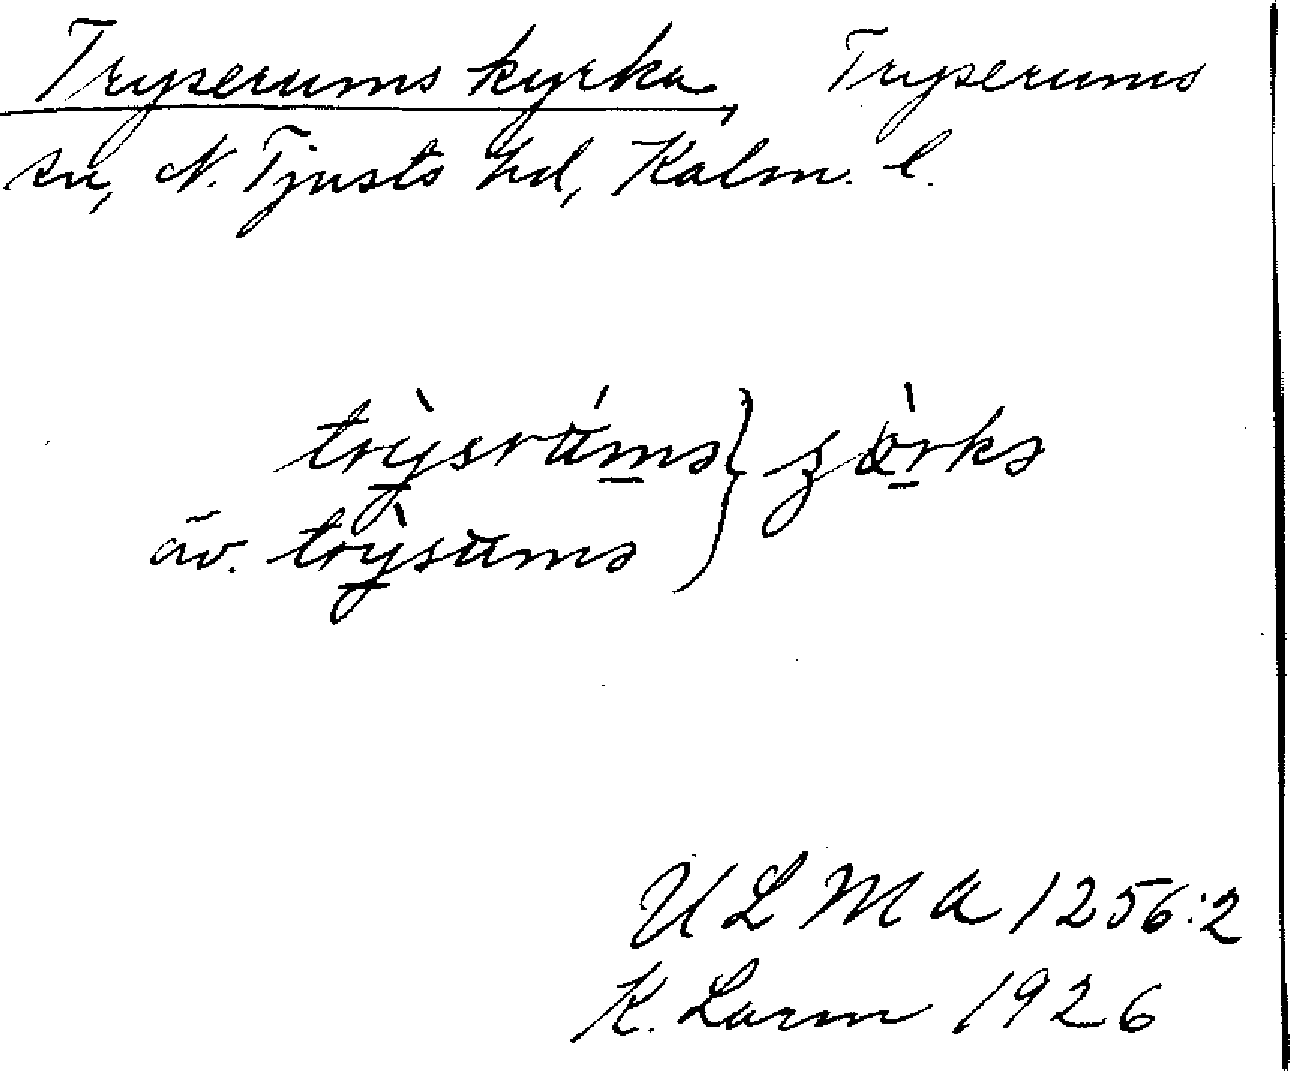 Tryserums kyrka, Tryserums
sn, N. Tjusts hd, Kalm. l.
trỳsrä́ms } 
äv. trỳsäms
ULMA 1256:2
K. Larm 1926